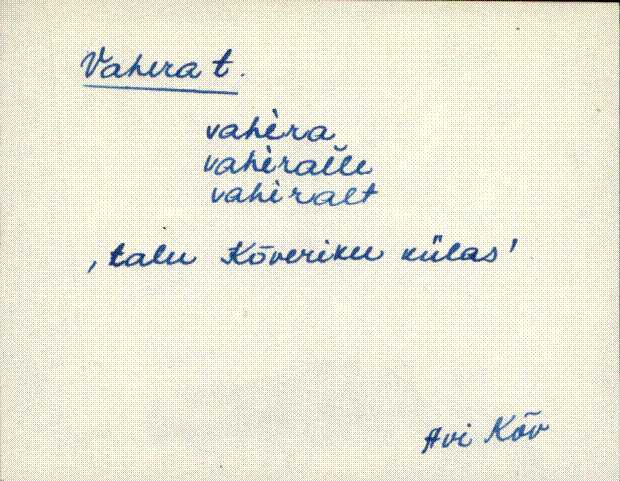 Vahera t.
vahèra
vahèralle
vahèralt
‚talu Kõveriku külas'
Avi Kõv